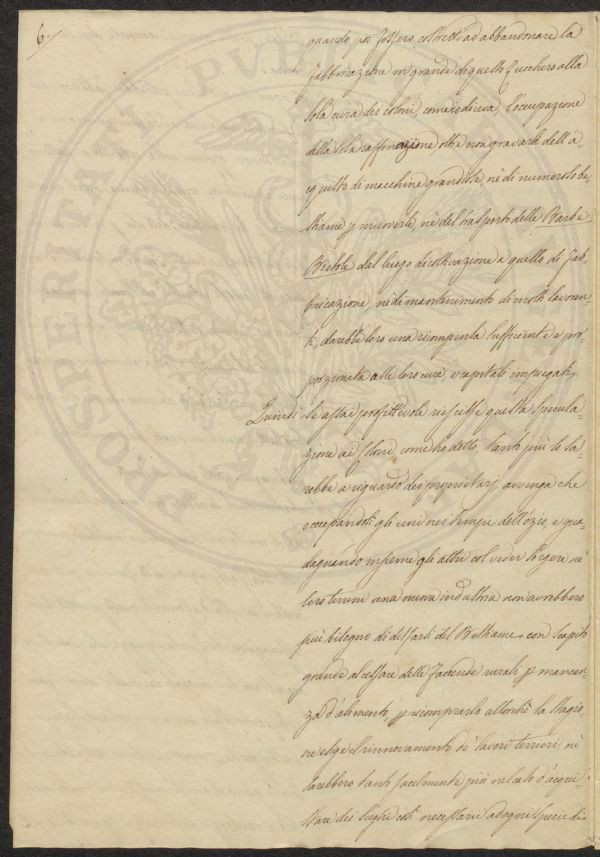 6.
quando poi fossero costretti ad abbandonare la
fabbricazione in grande di questo Zucchero alla
sola cura dei coloni, come io diceva, l'occupazione
della sola raffinazione, oltre non gravarli dell'a-
cquisto di macchine grandiose, nè di numeroso be-
stiame p muoverle, nè del trasporto delle Barbe
Bietole dal luogo di coltivazione a quello di fab-
bricazione, nè di mantenimento di molti lavoran-
ti, darebbe loro una ricompensa sufficiente e pro-
porzionata alle loro cure, e capitali impiegati.
Quindi se assai profittevole riescisse questa specula-
zione ai coloni, come ho detto, tanto più lo sa-
rebbe a riguardo dei proprietarj avvenga che
occupandosi gli uni nei tempi dell'ozio, e gua-
dagnando insieme gli altri col veder sorgere ne'
loro terreni una nuova industria non avrebbero
più bisogno di disfarsi del Bestiame con scapito
grande al cessare delle faccende rurali p mancan-
za d'alimento, p ricomprarlo allorchè la stagio-
ne esige il rinnovamento de' lavori terrieri, nè
sarebbero tanto facilmente più nel caso d'acqui-
stare dei sughi così necessarj ad ogni specie di
PROSPERITATI PUBLICAE